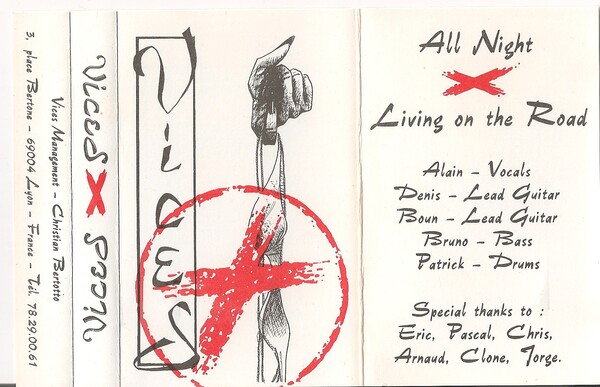 Vices Management – Christian Bertotto
3, place Bertone – 69004 Lyon – France – Tél. 78.29.00.61
Vices X Vices
Vices
All Night
X
Living on the Road
Alain – Vocals
Denis – Lead Guitar
Boun – Lead Guitar
Bruno – Bass
Patrick – Drums
Special thanks to :
Eric, Pascal, Chris,
Arnaud, Clone, Jorge.